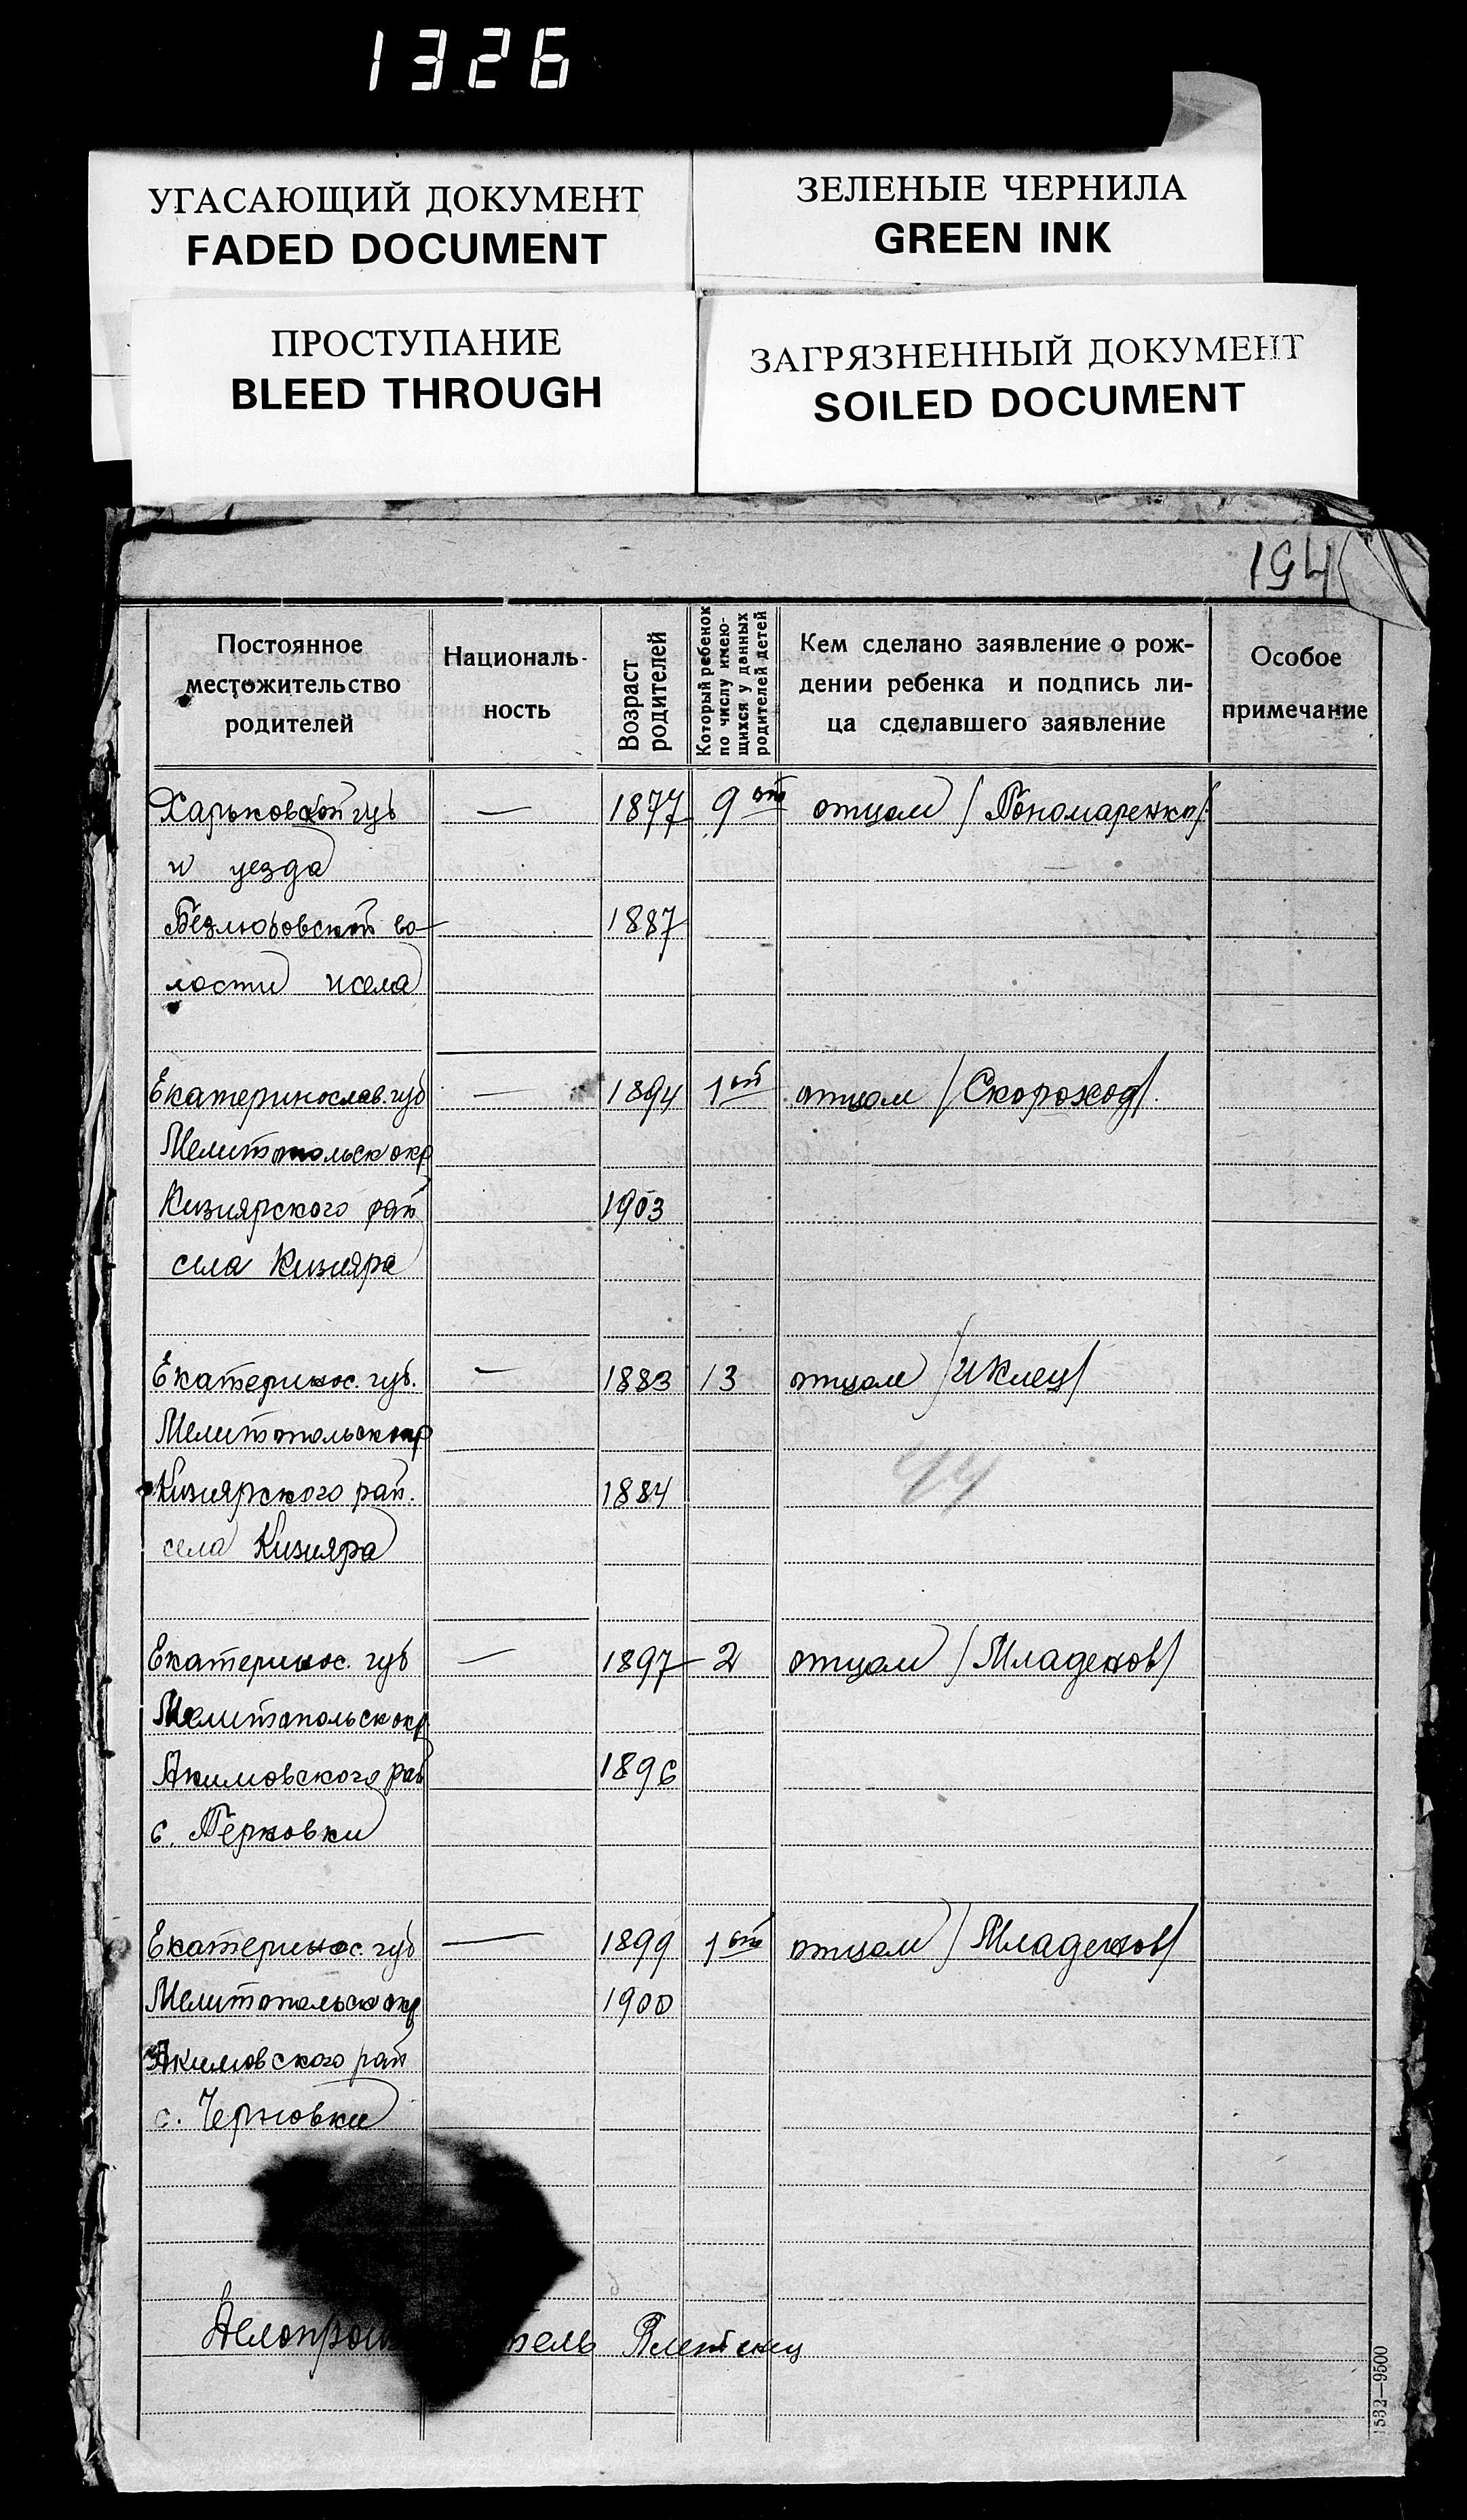 1326
УГАСАЮЩИЙ ДОКУМЕНТ
FADED DOCUMENT
ЗЕЛЕНЫЕ ЧЕРНИЛА
GREEN INK
ПРОСТУПАНИЕ
BLEED THROUGH
ЗАГРЯЗНЕННЫЙ ДОКУМЕНТ
SOILED DOCUMENT
194
Постоянное
местожительство
родителей
Националь-
ность
Возраст
родителей
Который ребенок
по числу имею-
щихся у данных
родителей детей
Кем сделано заявление о рож-
дении ребенка и подпись ли-
ца сделавшего заявление
Особое
примечание
Харьковской губ — 1877 9 ый отцом /Пономаренко/
и уезда
Безлюдовской во- 1887
лости и села
Екатеринослав. губ — 1894 1 ый отцом /Скороход/.
Мелитопольск окр
Кизиярского рай 1903
села Кизияра
Екатеринос. губ. — 1883 13 отцом /Иклец/
Мелитопольск окр
Кизиярского рай. 1884
села Кизияра
Екатеринос. губ — 1897 2 отцом /Младенов/
Мелитопольск окр
Акимовского рай 1896
с.
Екатеринос. губ — 1899 1 ый отцом /Младенов/
Мелитопольск окр 1900
Акимовского рай
с. Черновки
1532—9500